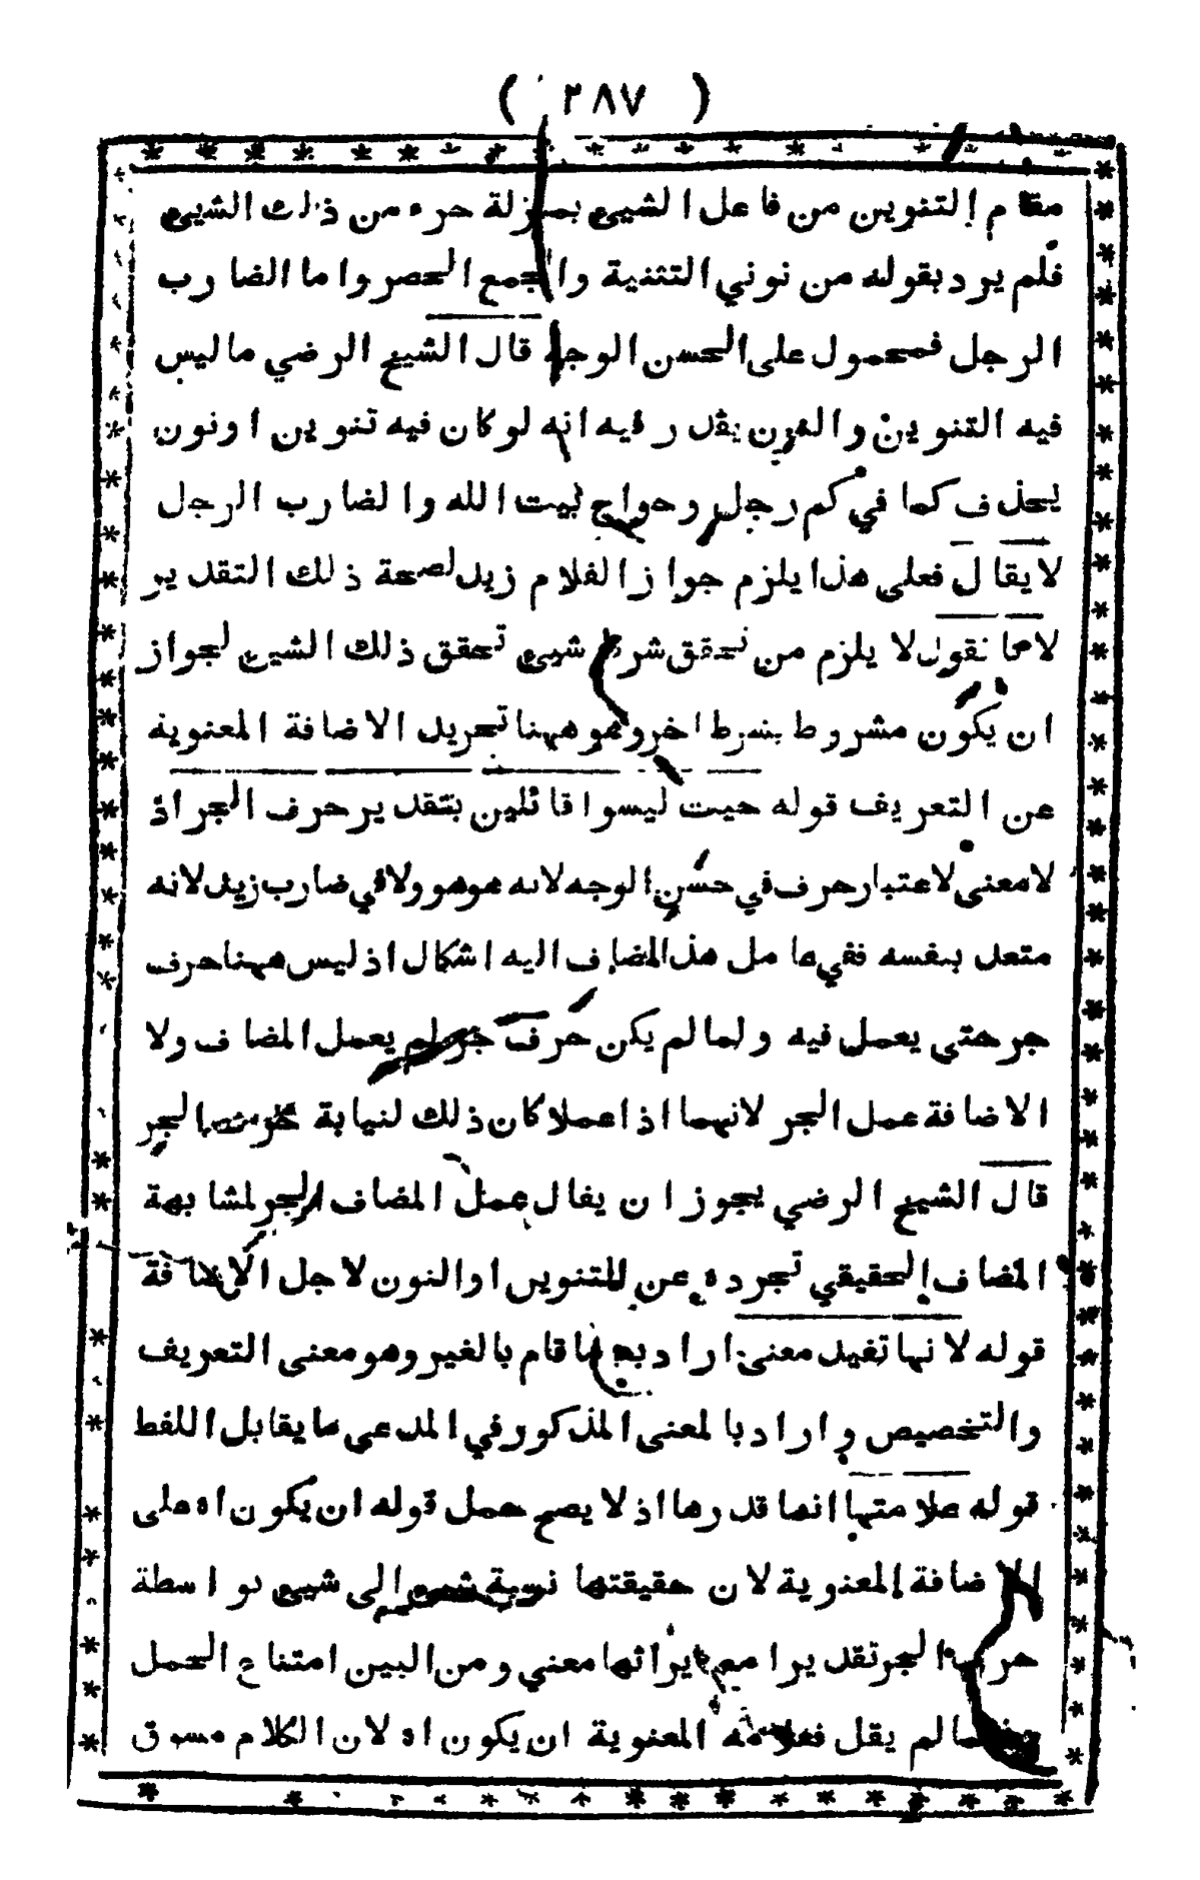 ( ٢٨٧ )
مقام التنوين من فاعل الشيئ بمنزلة جزء من ذلك الشيئ
فلم يرد بقوله من نوني التثنية والجمع الحصر واما الضارب
الرجل فمحمول على الحسن الوجه قال الشيخ الرضي ماليس
فيه التنوين والنون يقدر فيه انه لوكان فيه تنوين اونون
يحذف كما في كم رجل وحواج بيت الله والضارب الرجل
لايقال فعلى هذا يلزم جواز الغلام زيد لصحة ذلك التقدير
لانا نقول لا يلزم من تحقق شرط شيئ تحقق ذلك الشيئ لجواز
ان يكون مشروطا بشرط اخر وهو ههنا تجريد الاضافة المعنوية
عن التعريف قوله حيث ليسوا قائلين بتقدير حرف الجر اذ
لامعنى لاعتبار حرف في حسن الوجه لانه هو هو ولا في ضارب زيد لانه
متعد بنفسه ففي عامل هذا المضاف اليه اشكال اذ ليس ههنا حرف
جر حتى يعمل فيه ولما لم يكن حرف جر لم يعمل المضاف ولا
الاضافة عمل الجر لانهما اذا عملا كان ذلك لنيابة الجر
قال الشيخ الرضي يجوز ان يقال عمل المضاف الجر لمشابهة
المضاف الحقيقي تجرده عن التنوين او النون لاجل الاضافة
قوله لانها تفيد معنى اراد به ما قام بالغير وهو معنى التعريف
والتخصيص واراد بالمعنى المذكور في المدعى ما يقابل اللفظ
قوله علامتها انما قدرها اذ لا يصح حمل قوله ان يكون اه على
الاضافة المعنوية لان حقيقتها نسبة شيئ الى شيئ بواسطة
حرف الجر تقديرا معنى ومن البين امتناع الحمل
لم يقل فعلامة المعنوية ان يكون اه لان الكلام مسوق